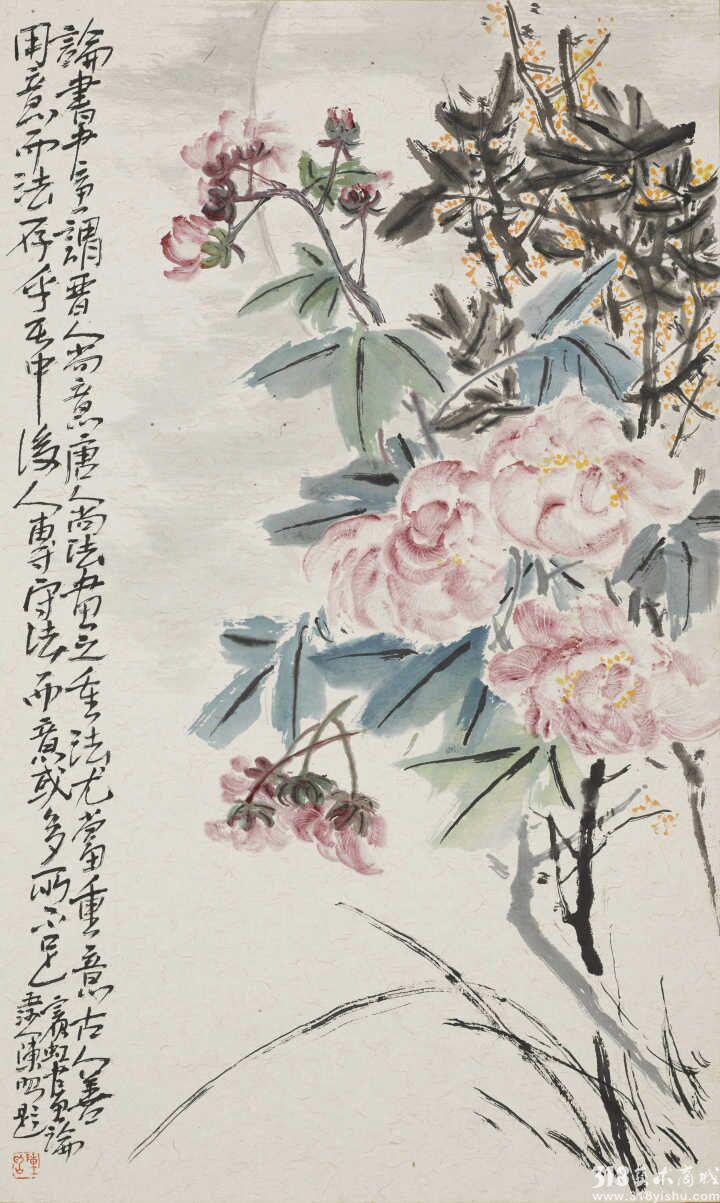 論書者每謂晋人尚意唐人尚法畫之重法尤當重意古人善
用意而法存乎其中後人專守法而意或多所不足
賓虹書畫論
陳明題
318艺术商城
www.318yishu.com